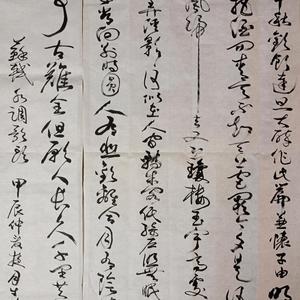 中秋歡飲達旦大醉作此篇兼懷子由 明
把酒問青天不知天上宮闕今夕是何
風歸去又恐瓊樓玉宇高處
弄清影何似在人間轉朱閣低綺戶照無眠
向別時圓人有悲歡離合月有陰
事古難全但願人長久千里共
蘇軾 水調歌頭 甲辰仲